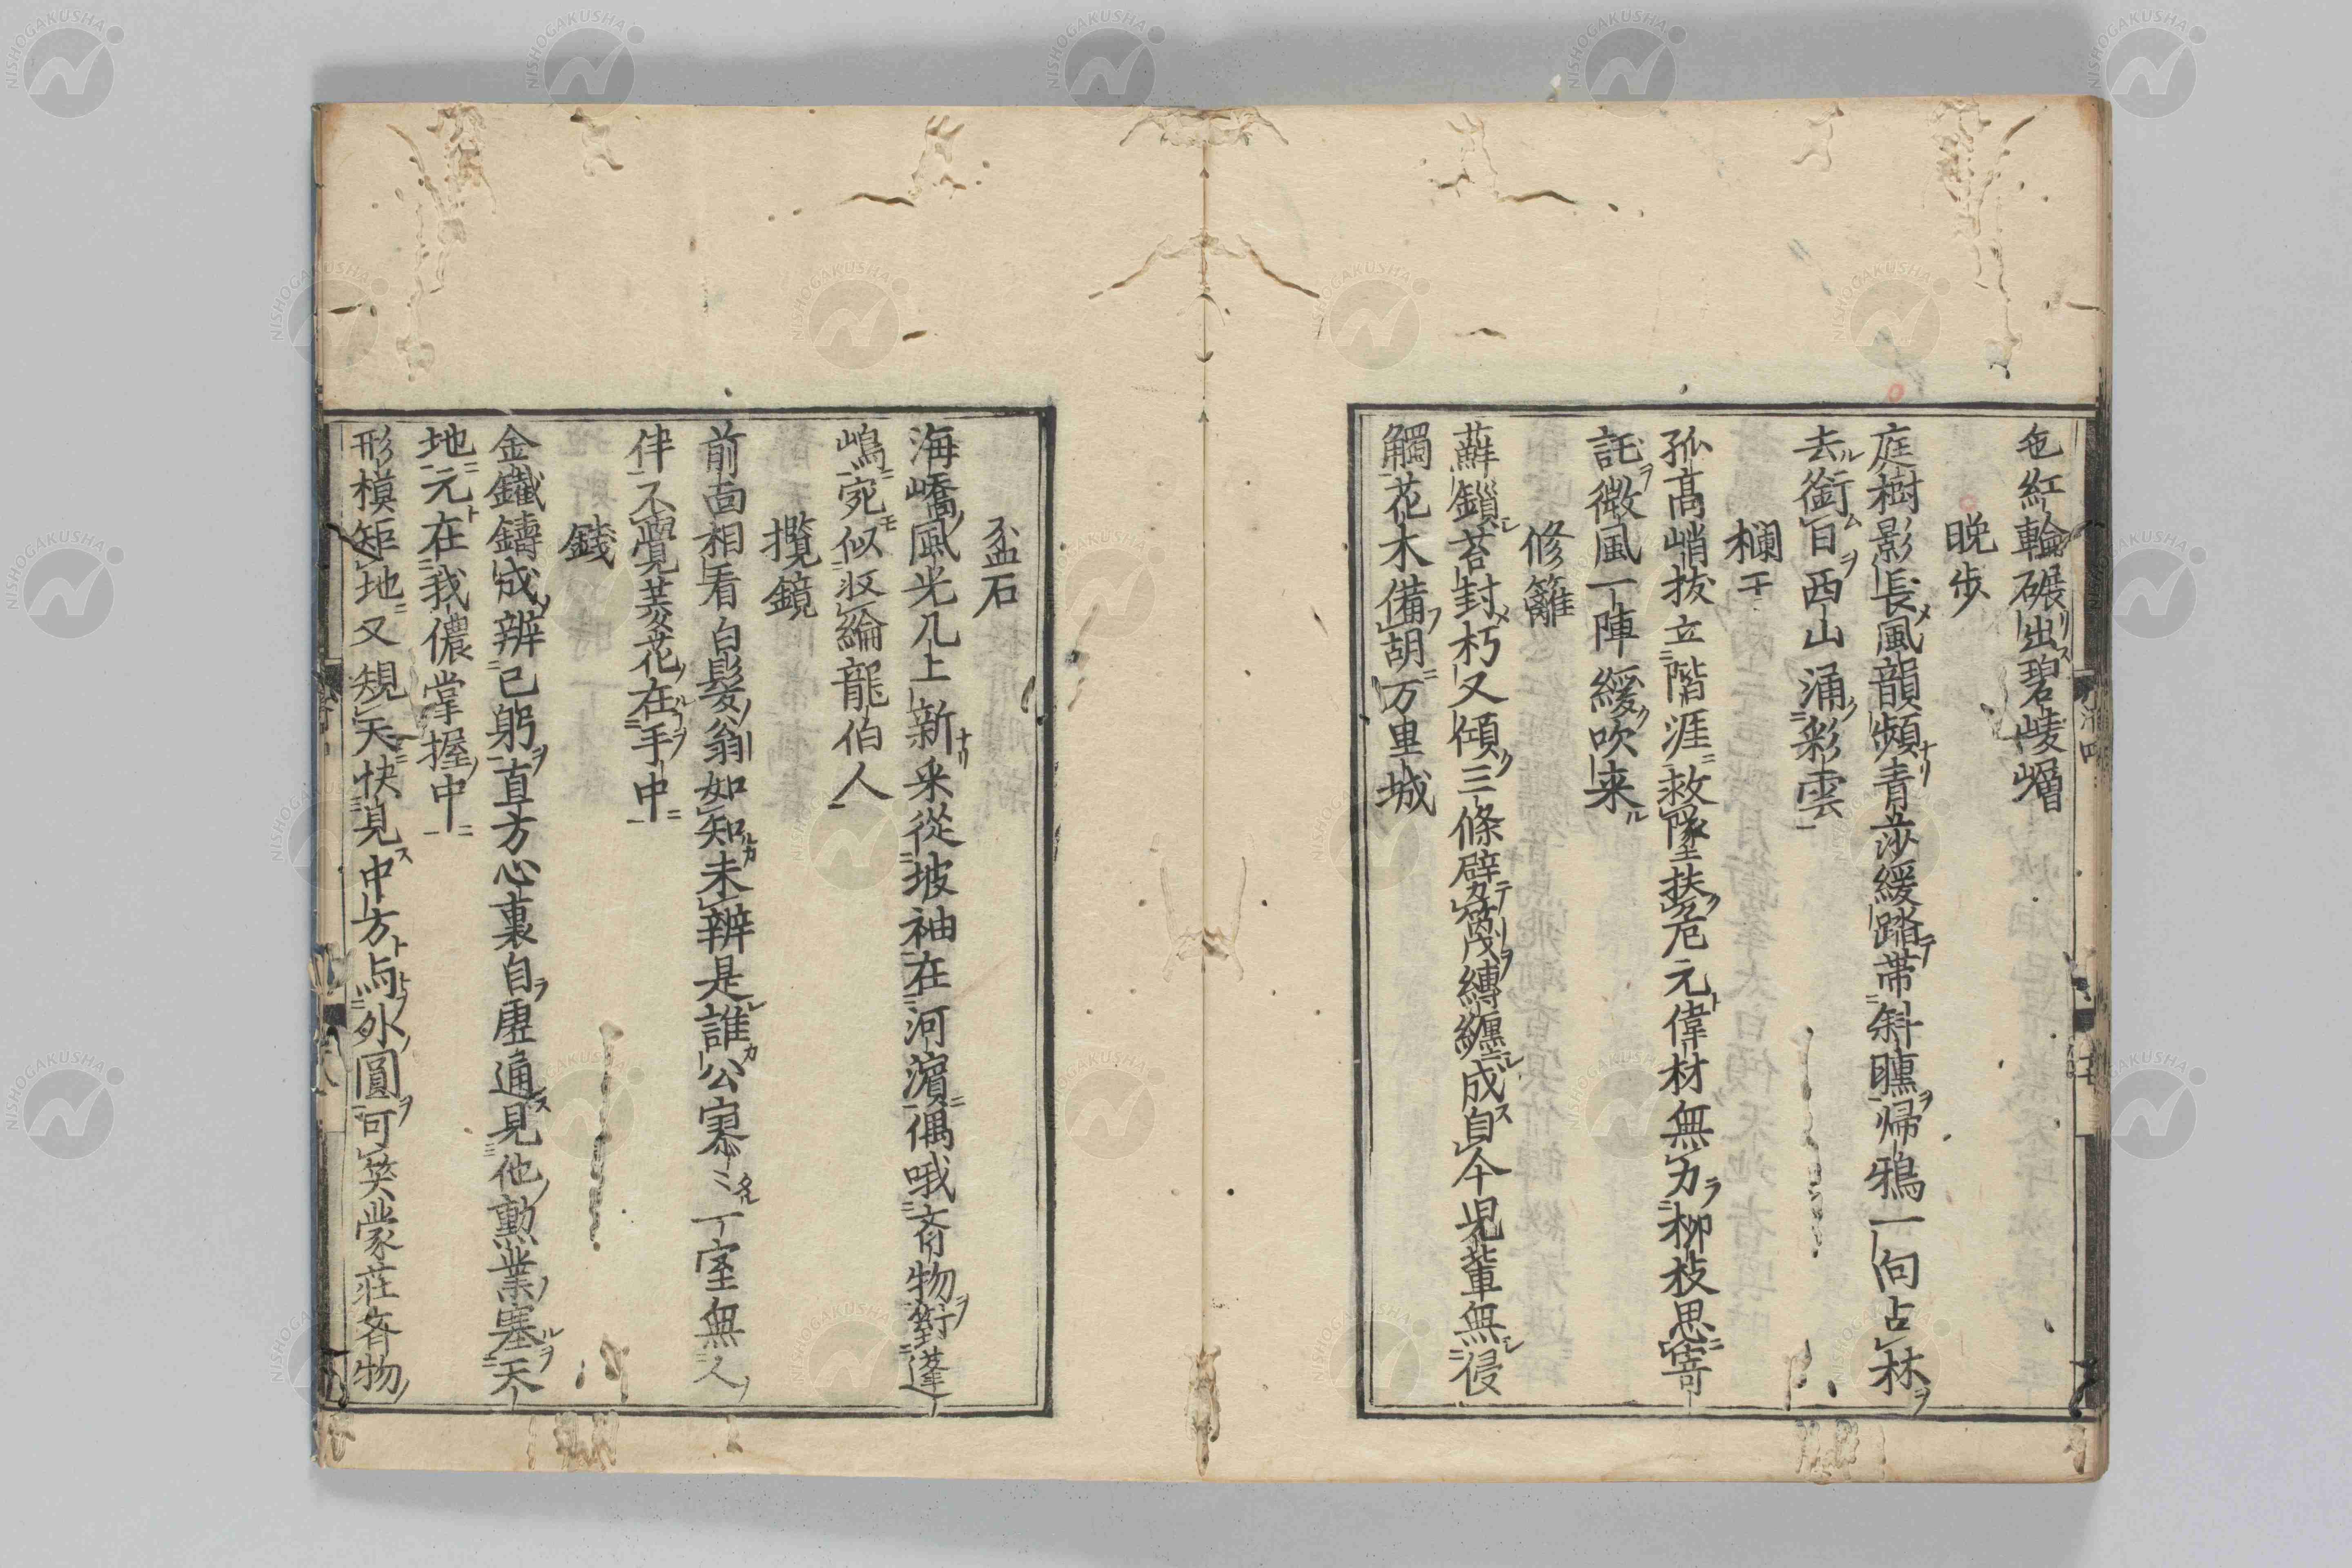 色紅輪碾出碧崚嶒
晩歩
庭樹影長風韻頻青莎緩踏帯斜曛帰鴉一向占林
去銜百西山涌彩雲
欄干
孤高峭抜立階涯救墜扶危元偉材無力柳枝思寄
託微風一陣緩吹来
修籬
蘚鎖苔封朽又傾三條劈篾縛纏成自今児輩無侵
觸花木備胡万里城
盆石
海嶠風光几上新采從坡袖在河濱偶哦斉物對蓬
嶋宛似収綸龍伯人
攬鏡
前面相看白髪翁如知未辨是誰公寥〻丁室無人
伴不覺菱花在手中
錢
金鐵鑄成辨己躬直方心裏自虚通見他勲業塞天
地元在我儂掌握中
形模矩地又規天快見中方与外圓可笑蒙荘斉物
NISHOGAKUSHA